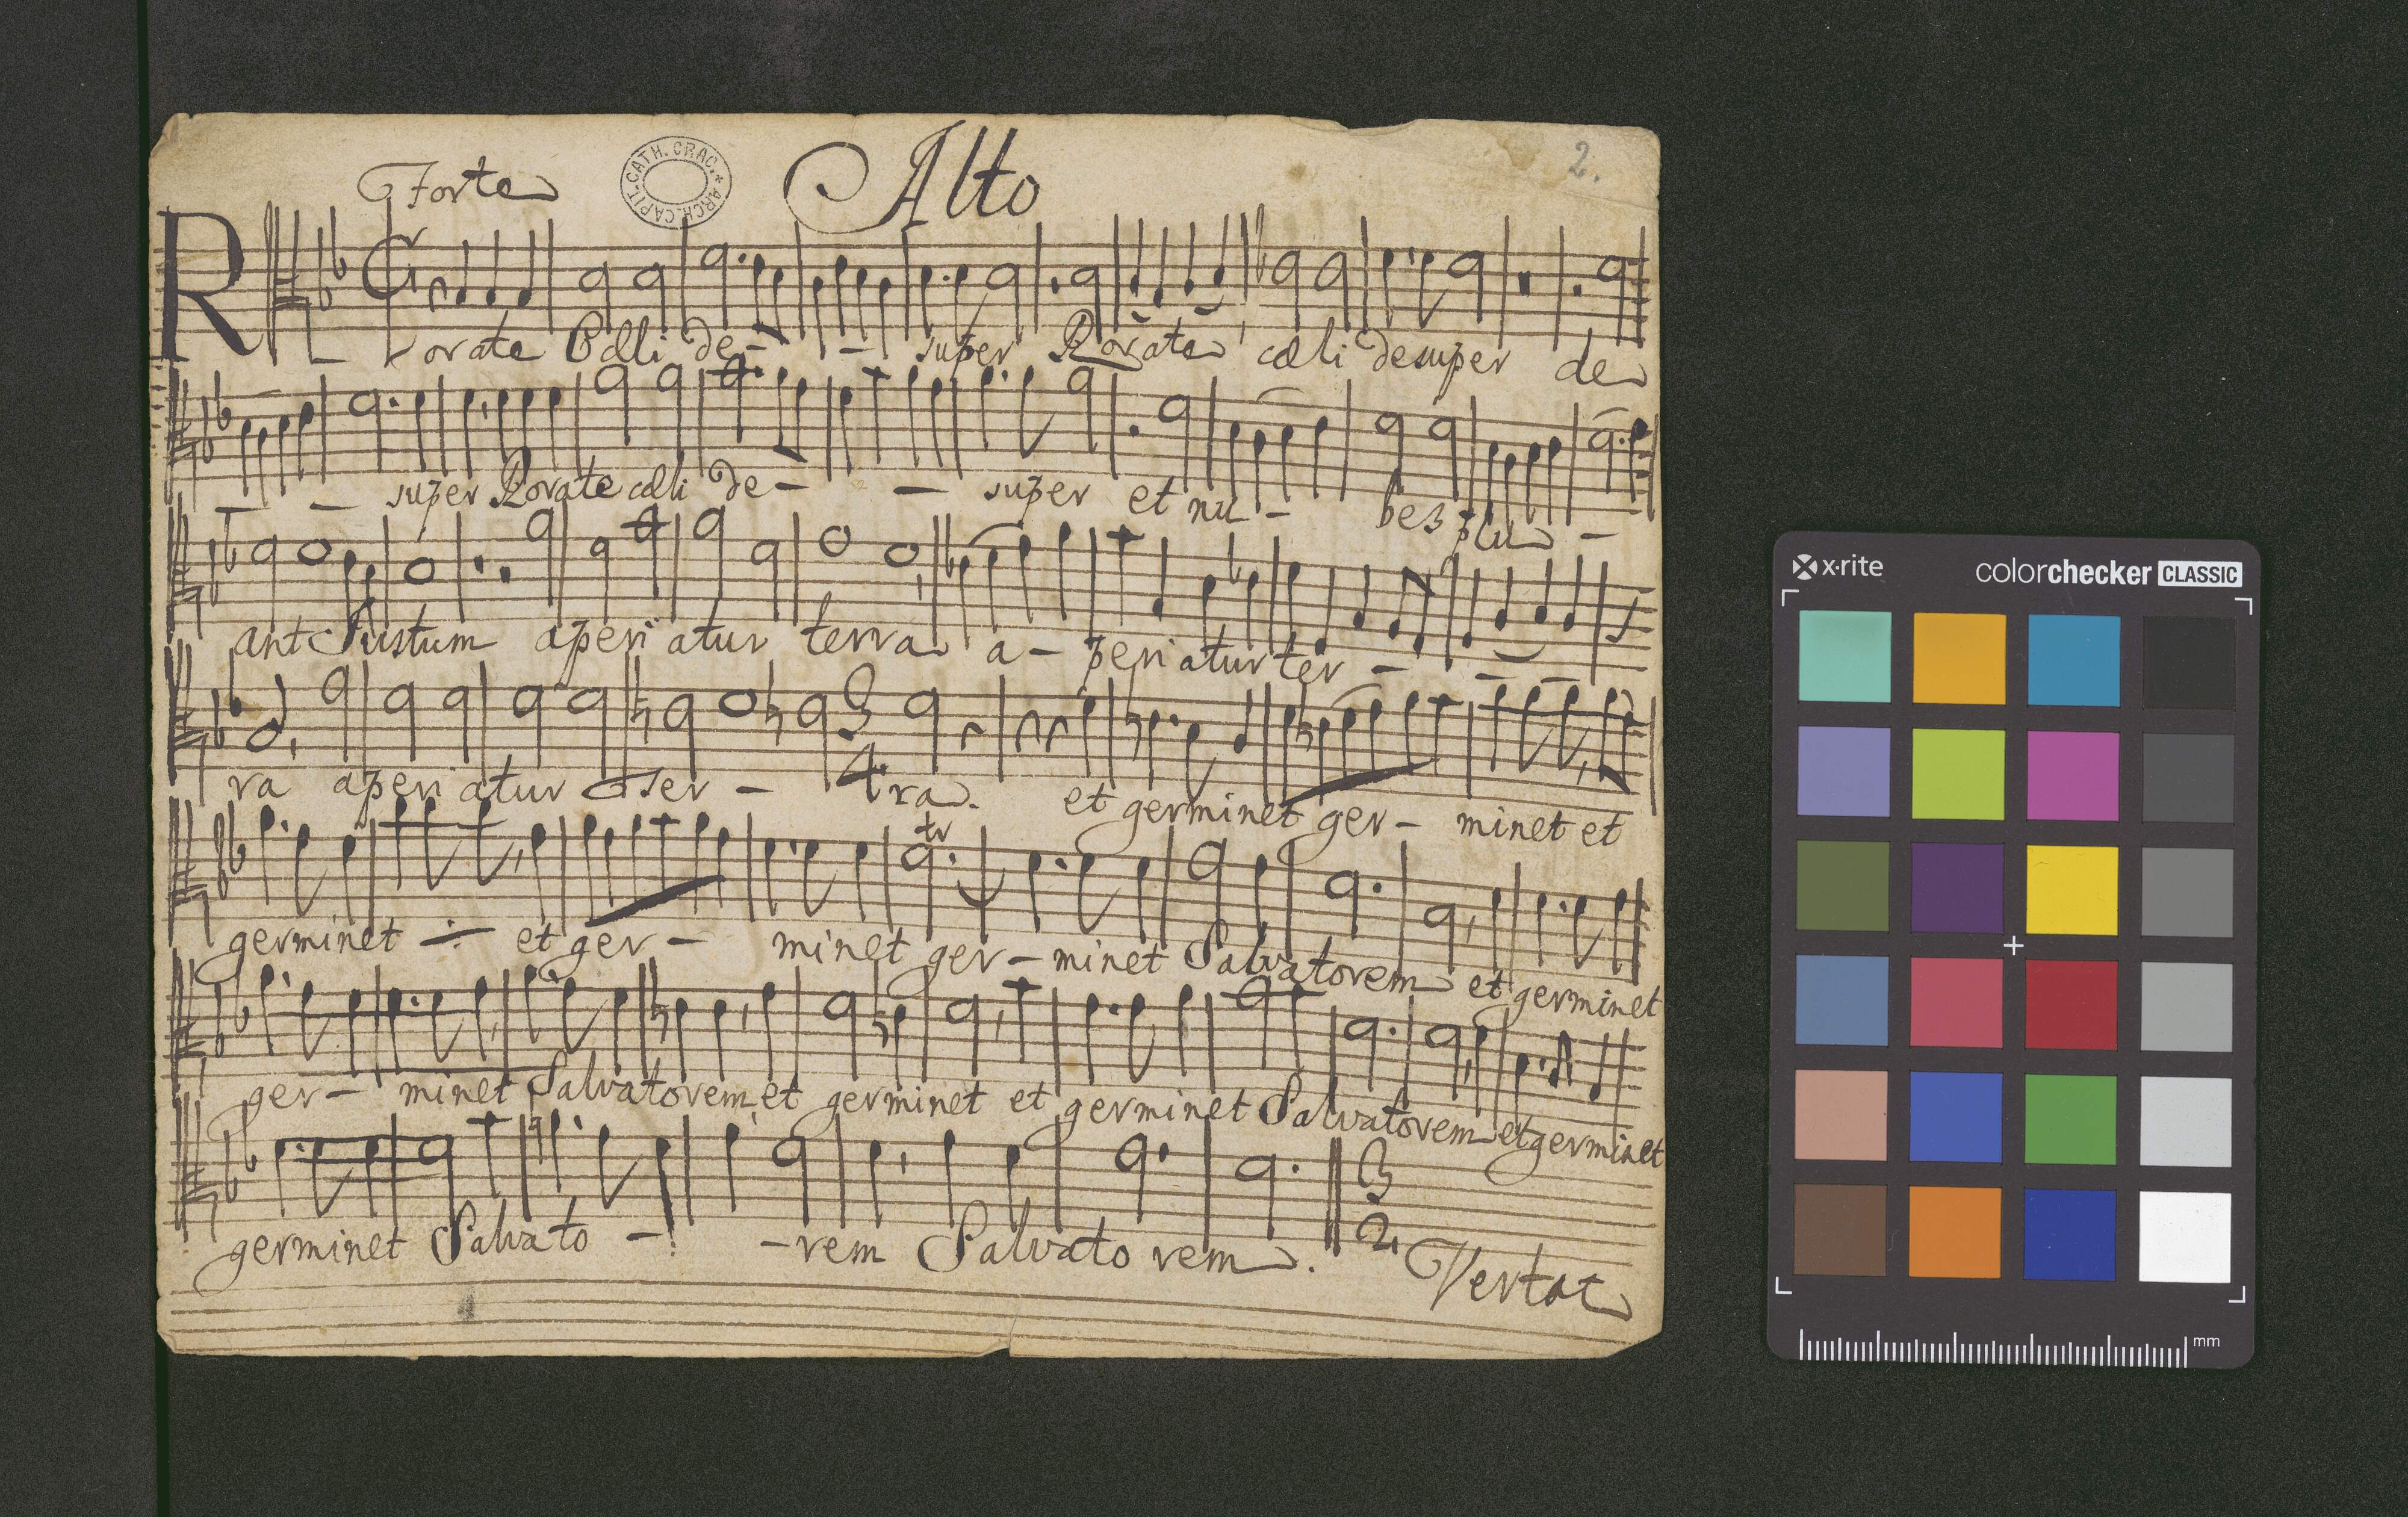 Forte
ARCH. CAPIT. CATH. CRAC. *
Alto
2.
Rorate Cæli de - - super Rorate cæli desuper de
- - super Rorate cæli de - - super et nu - bes plu -
ant Justum aperi atur terra a - peri atur ter - - -
ra aperi atur ter - ra. et germinet ger - minet et
3
4
tr
germinet ÷ et ger - minet ger - minet Salvatorem et germinet
ger - minet Salvatorem et germinet et germinet Salvatorem et germinet
germinet Salvato - - rem Salvato rem.
3
2
Vertat
x·rite
colorchecker CLASSIC
mm